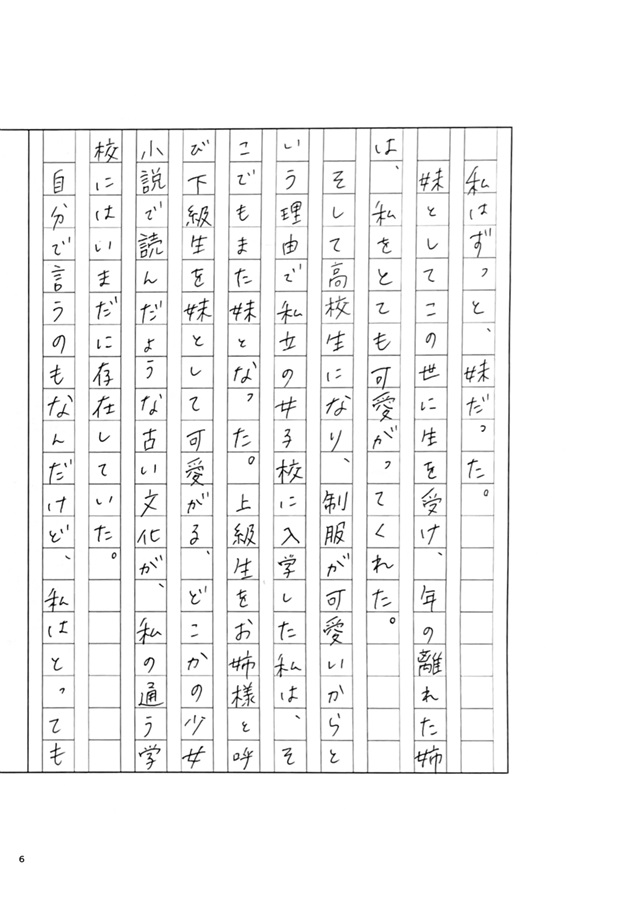 私はずっと、妹だった。
妹としてこの世に生を受け、年の離れた姉
は、私をとても可愛がってくれた。
そして高校生になり、制服が可愛いからと
いう理由で私立の女子校に入学した私は、そ
こでもまた妹となった。上級生をお姉様と呼
び下級生を妹として可愛がる、どこかの少女
小説で読んだような古い文化が、私の通う学
校にはいまだに存在していた。
自分で言うのもなんだけど、私はとっても
6